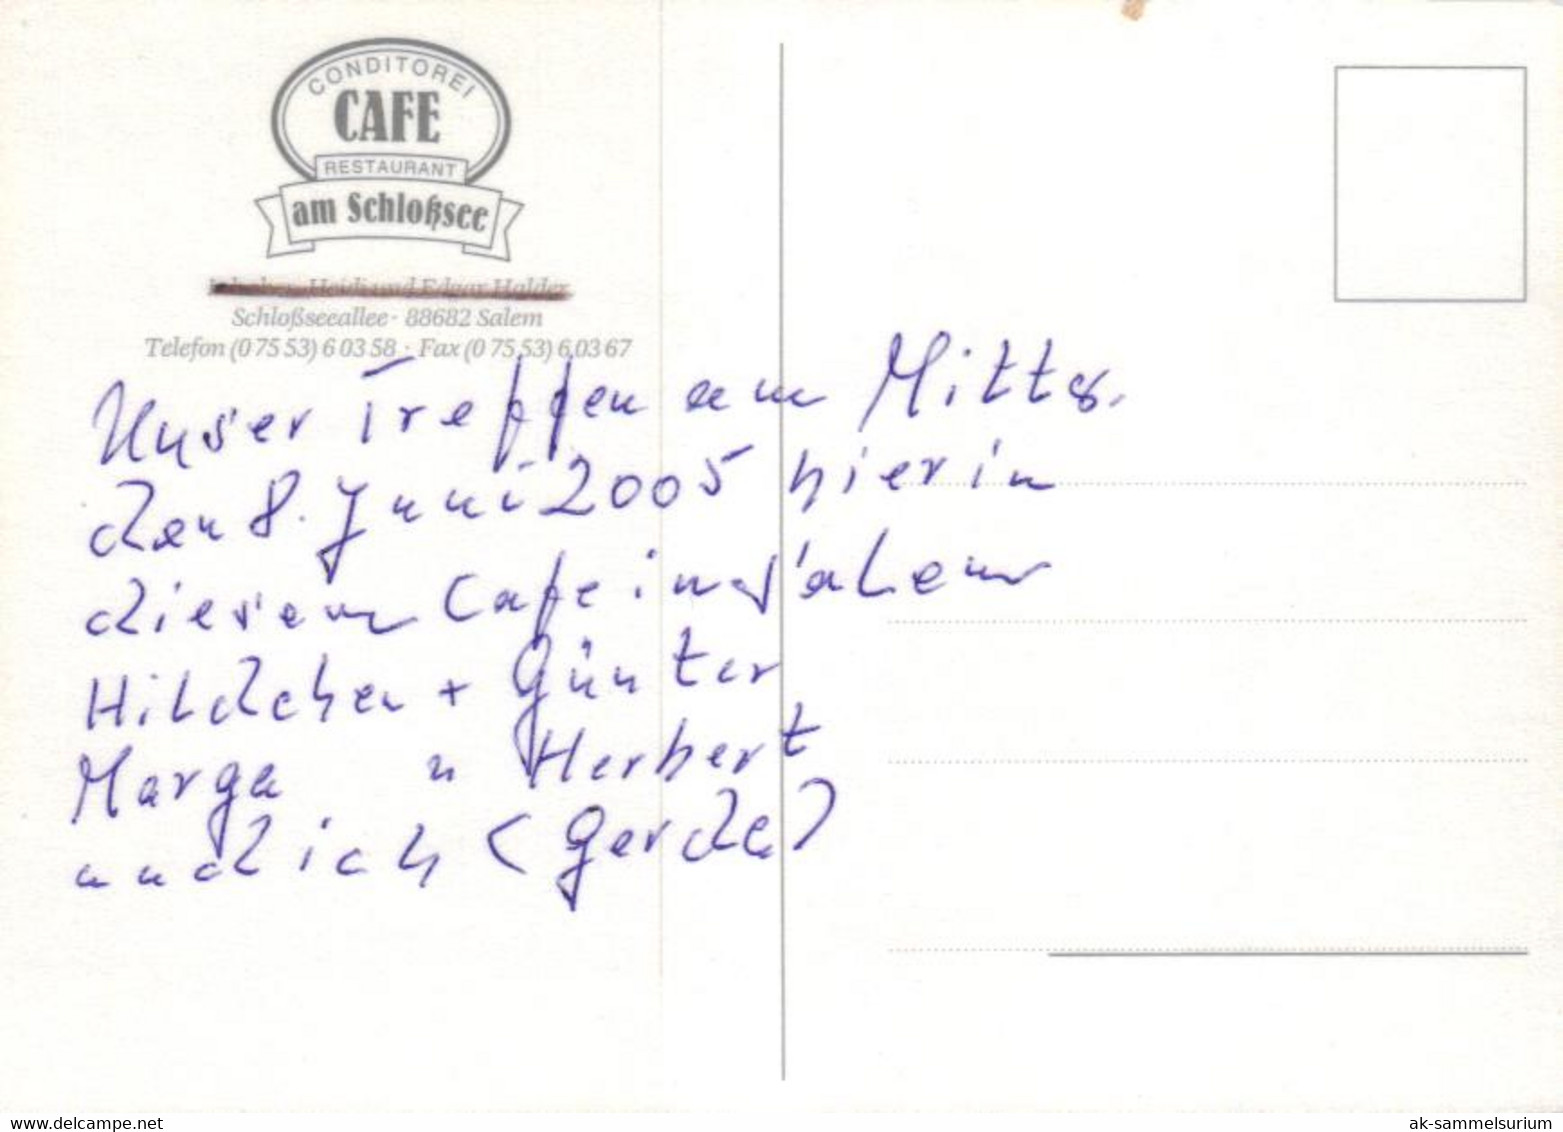 CONDITOREI
CAFE
RESTAURANT
am Schloßsee
Inhaber: Heidi und Edgar Halder
Schloßseeallee · 88682 Salem
Telefon (0 75 53) 6 03 58 · Fax (0 75 53) 6 03 67
Unser Treffen am Mittg.
den 8. Juni 2005 hier in
diesem Cafe in Salem
Hildchen + Günter
Marga " Herbert
und ich (Gerda)
ak-sammelsurium